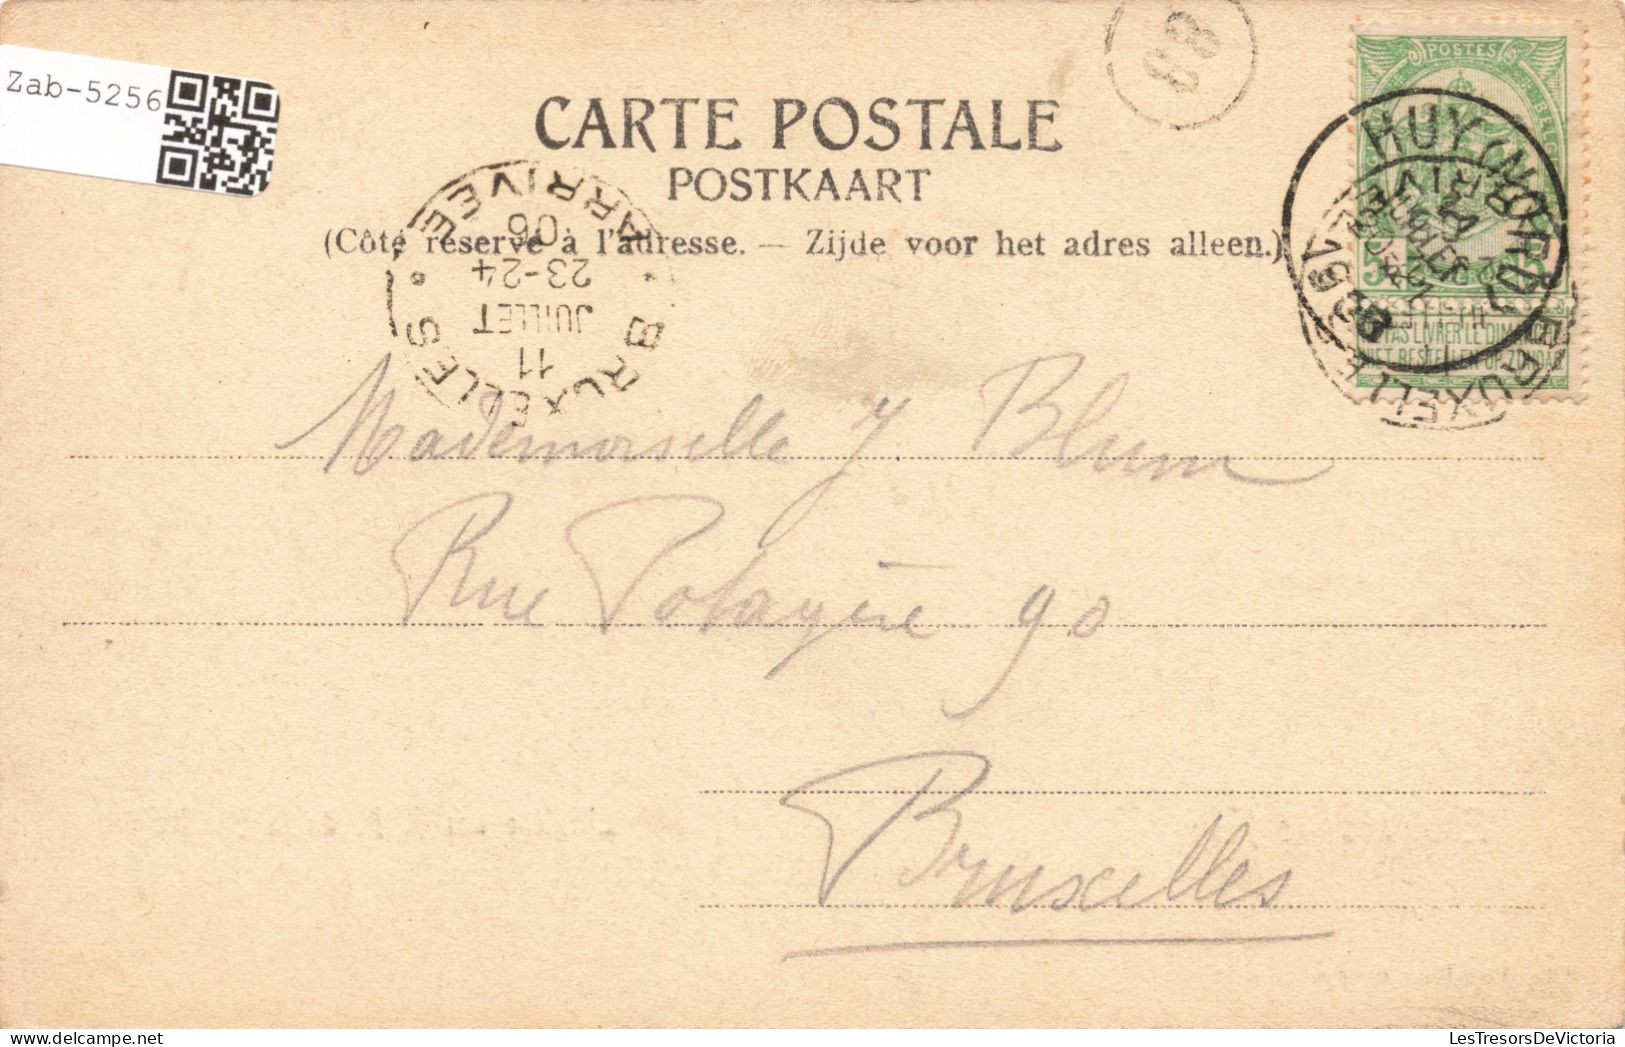 Zab-5256
88
CARTE POSTALE
POSTKAART
(Côté réservé à l'adresse. — Zijde voor het adres alleen.)
BRUXELLES
ARRIVEE
11
JUILLET
23-24
06
POSTES
HUY (NORD)
1906
BRUXELLES
PAS LIVRER LE DIMANCHE
NIET BESTELLEN OP ZONDAG
Mademoiselle J Blum
Rue Potagère 90
Bruxelles
LesTresorsDeVictoria